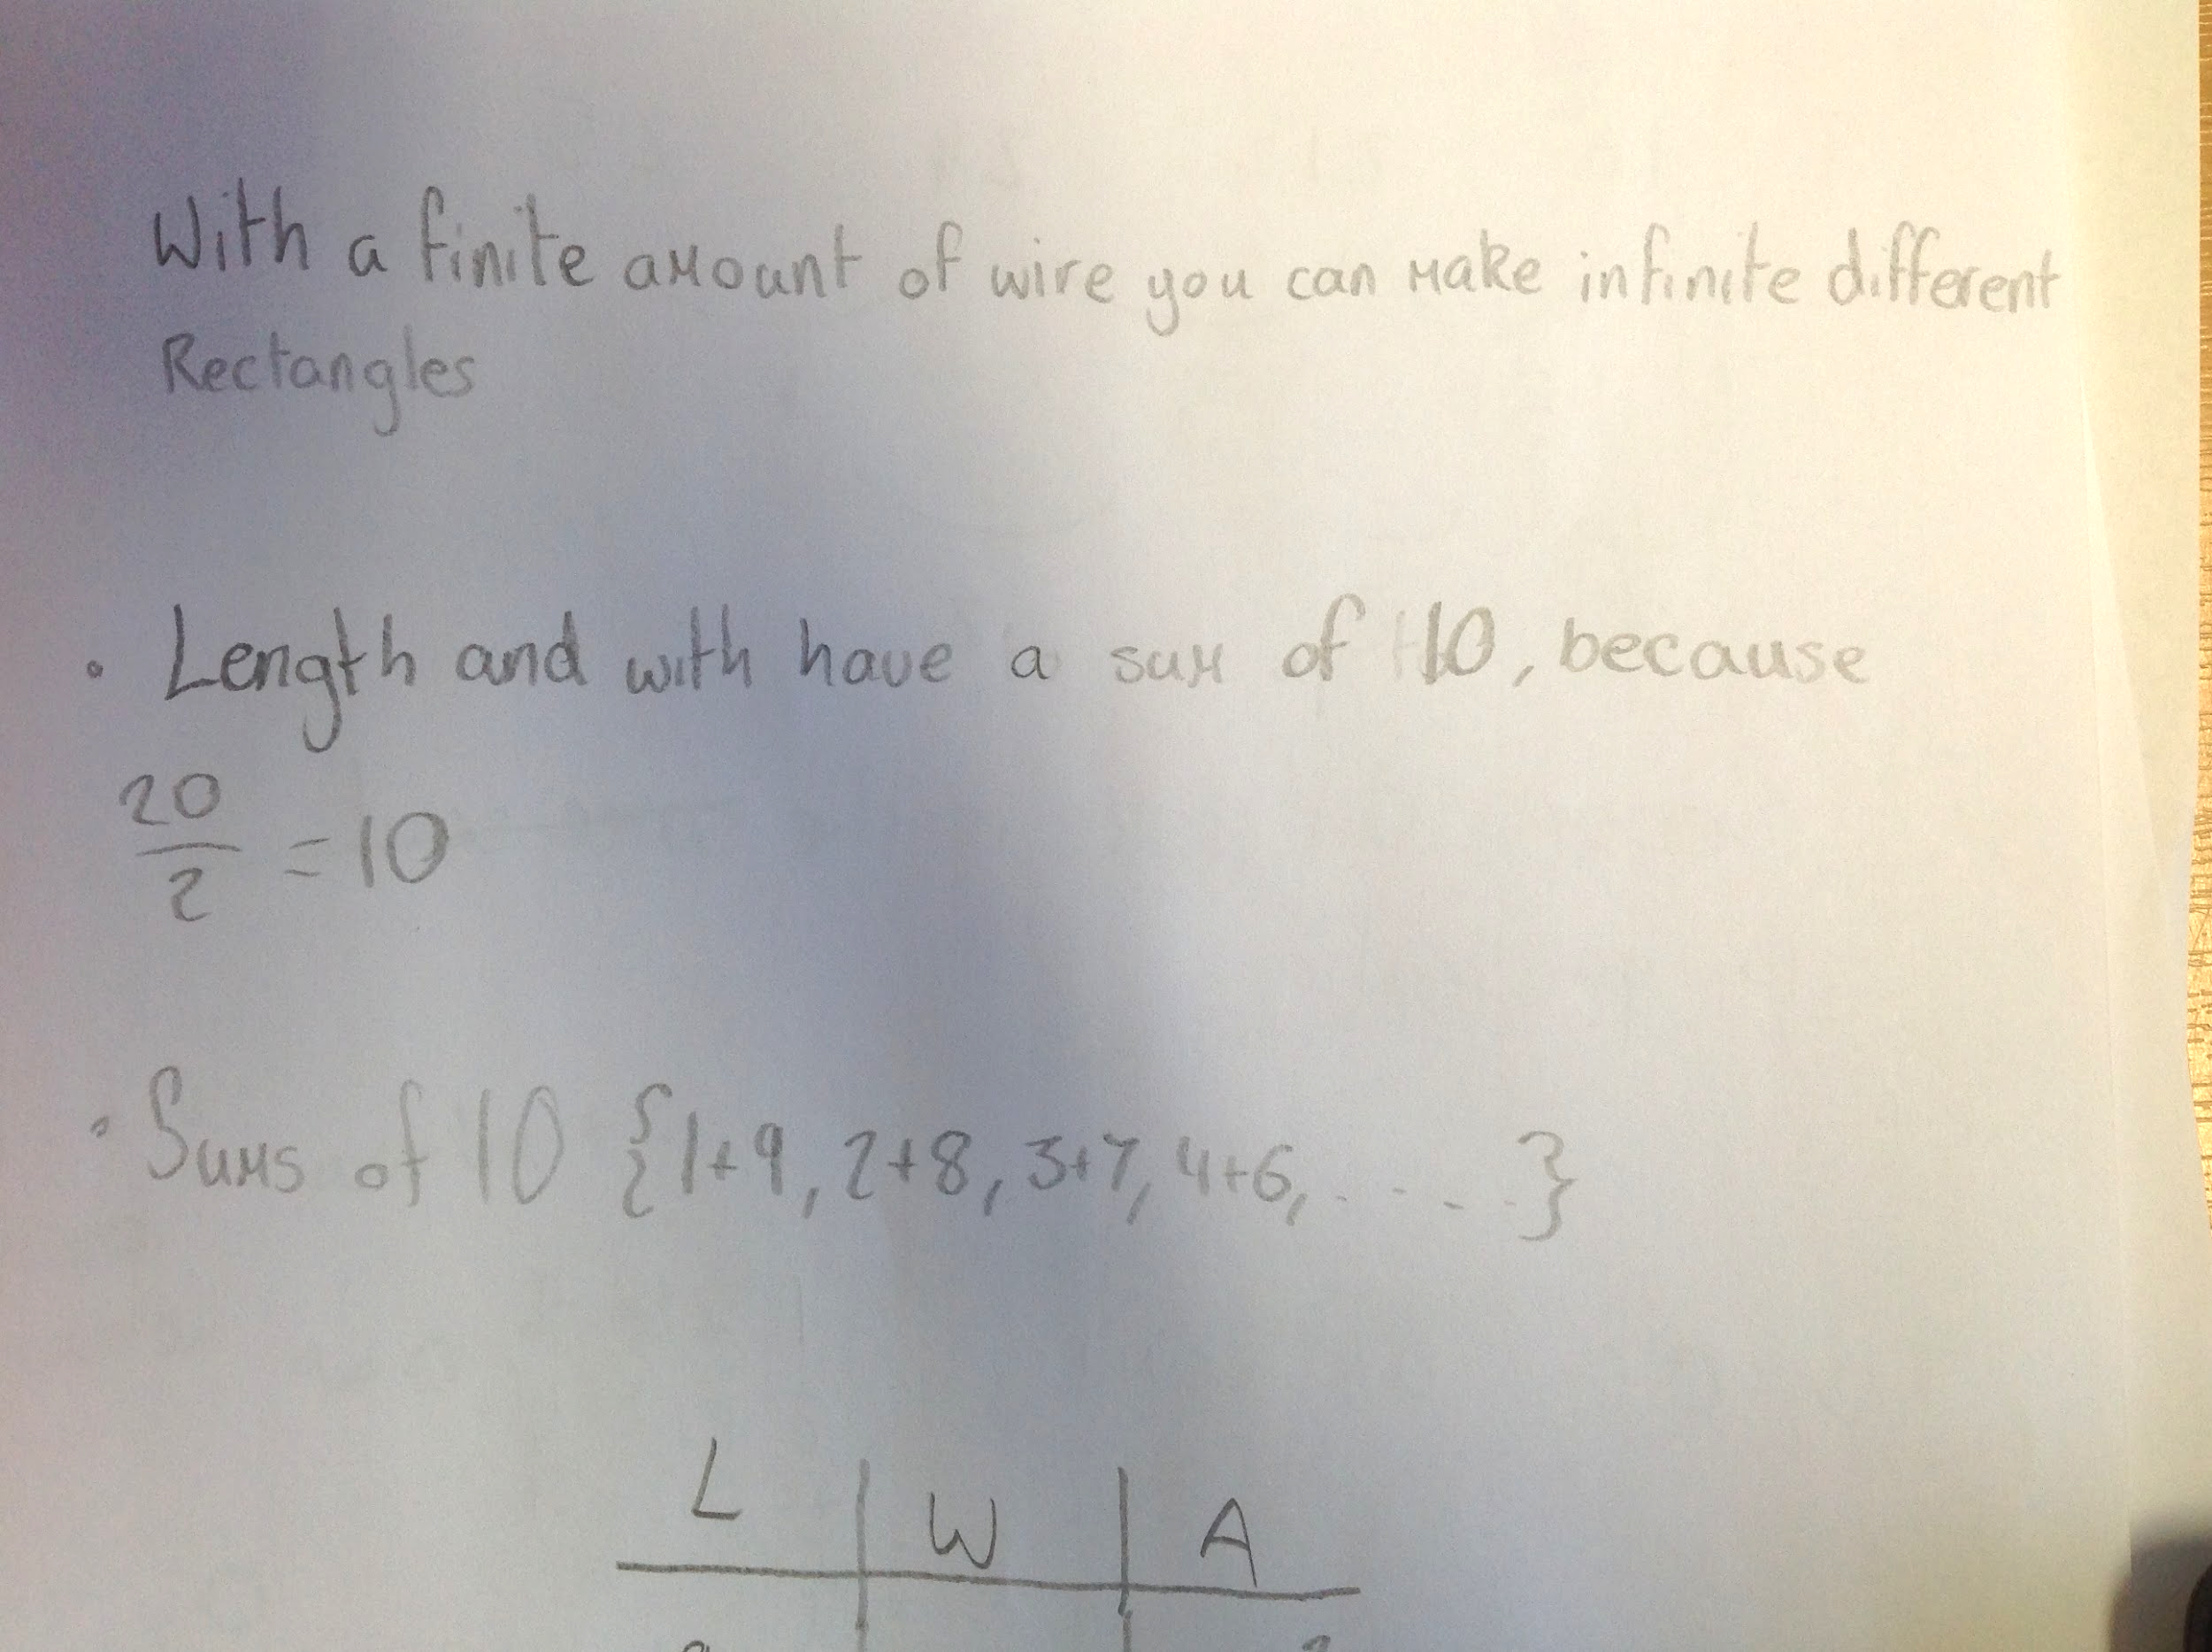 With a finite amount of wire you can make infinite different
Rectangles
• Length and with have a sum of 10, because
20/2 = 10
• Sums of 10 {1+9, 2+8, 3+7, 4+6, .....}
L | W | A